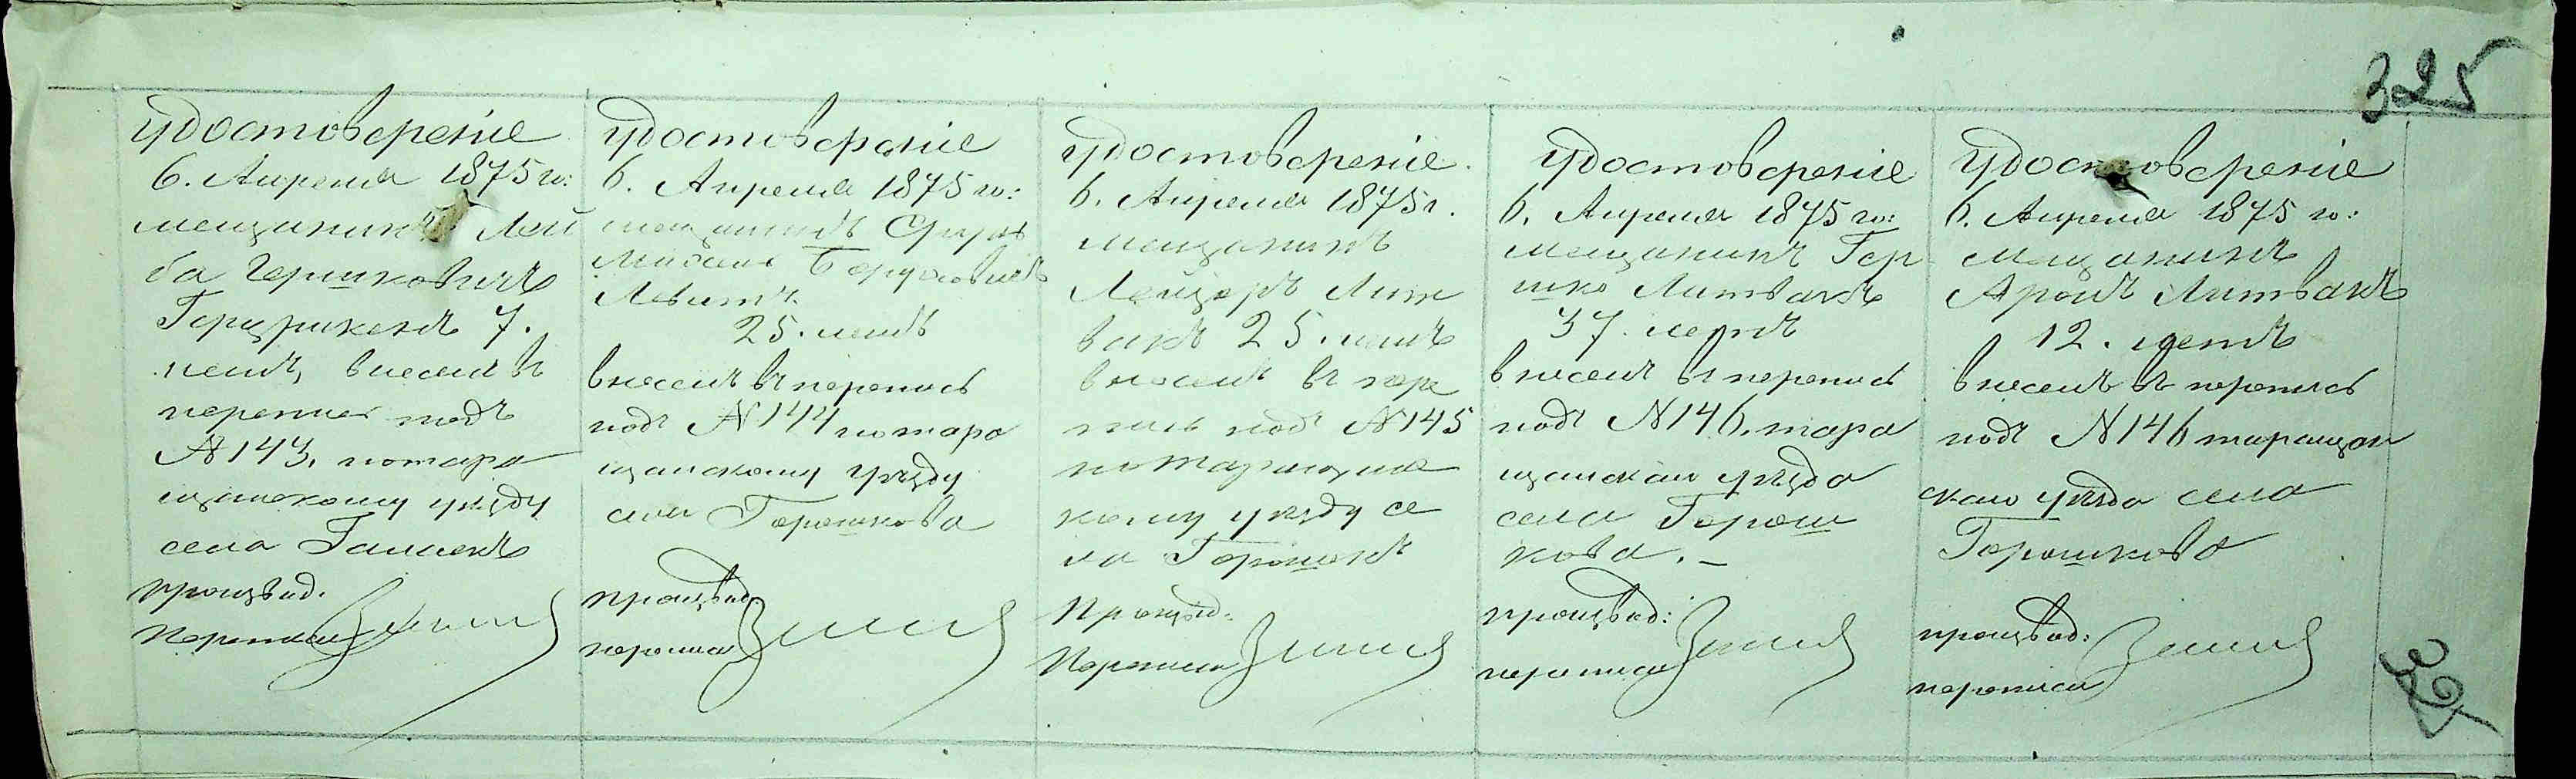 325
удостоверение
6. Апреля 1875 го:
мещанинъ Лей
ба Гершковичъ
7.
летъ, внесенъ въ
перепись подъ
N 143. по тара
щанскому уезду
села
производ.
переписи
удостоверение
6. Апреля 1875 го:
мещанинъ
Боруховичъ
Левитъ
25. летъ
внесенъ въ перепись
подъ N 144 по тара
щанскому уезду
села Горошкова
производ
переписи
удостоверение.
6. Апреля 1875 г.
мещанинъ
Лейзоръ Лит
вакъ 25. летъ
внесенъ въ пере
пись подъ N 145
по таращанс
кому уезду се
ла
Производ:
Переписи
удостоверение
6. Апреля 1875 го:
мещанинъ Гер
шко Литвакъ
37. летъ
внесенъ въ перепись
подъ N 146. тара
щанскаго уезда
села Горош
кова. –
производ:
переписи
удостоверение
6. Апреля 1875 го:
мещанинъ
Аронъ Литвакъ
12. летъ
внесенъ въ перепись
подъ N 146 таращан
скаго уезда села
Горошкова
производ:
переписи